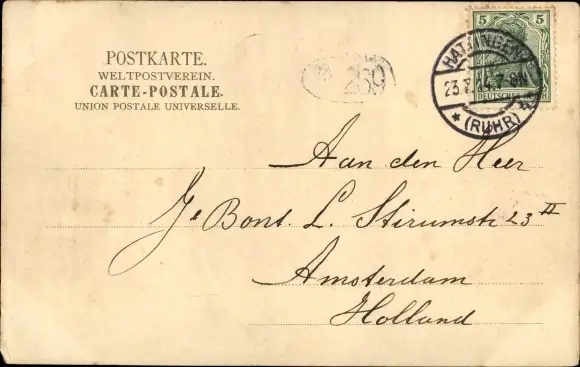 POSTKARTE.
WELTPOSTVEREIN.
CARTE-POSTALE.
UNION POSTALE UNIVERSELLE.
269
5 5
DEUTSCHES REICH
HATTINGEN
23. 7-8N
* (RUHR) *
Aan den Heer
Je Bons. L. Stirumstr 23 II
Amsterdam
Holland